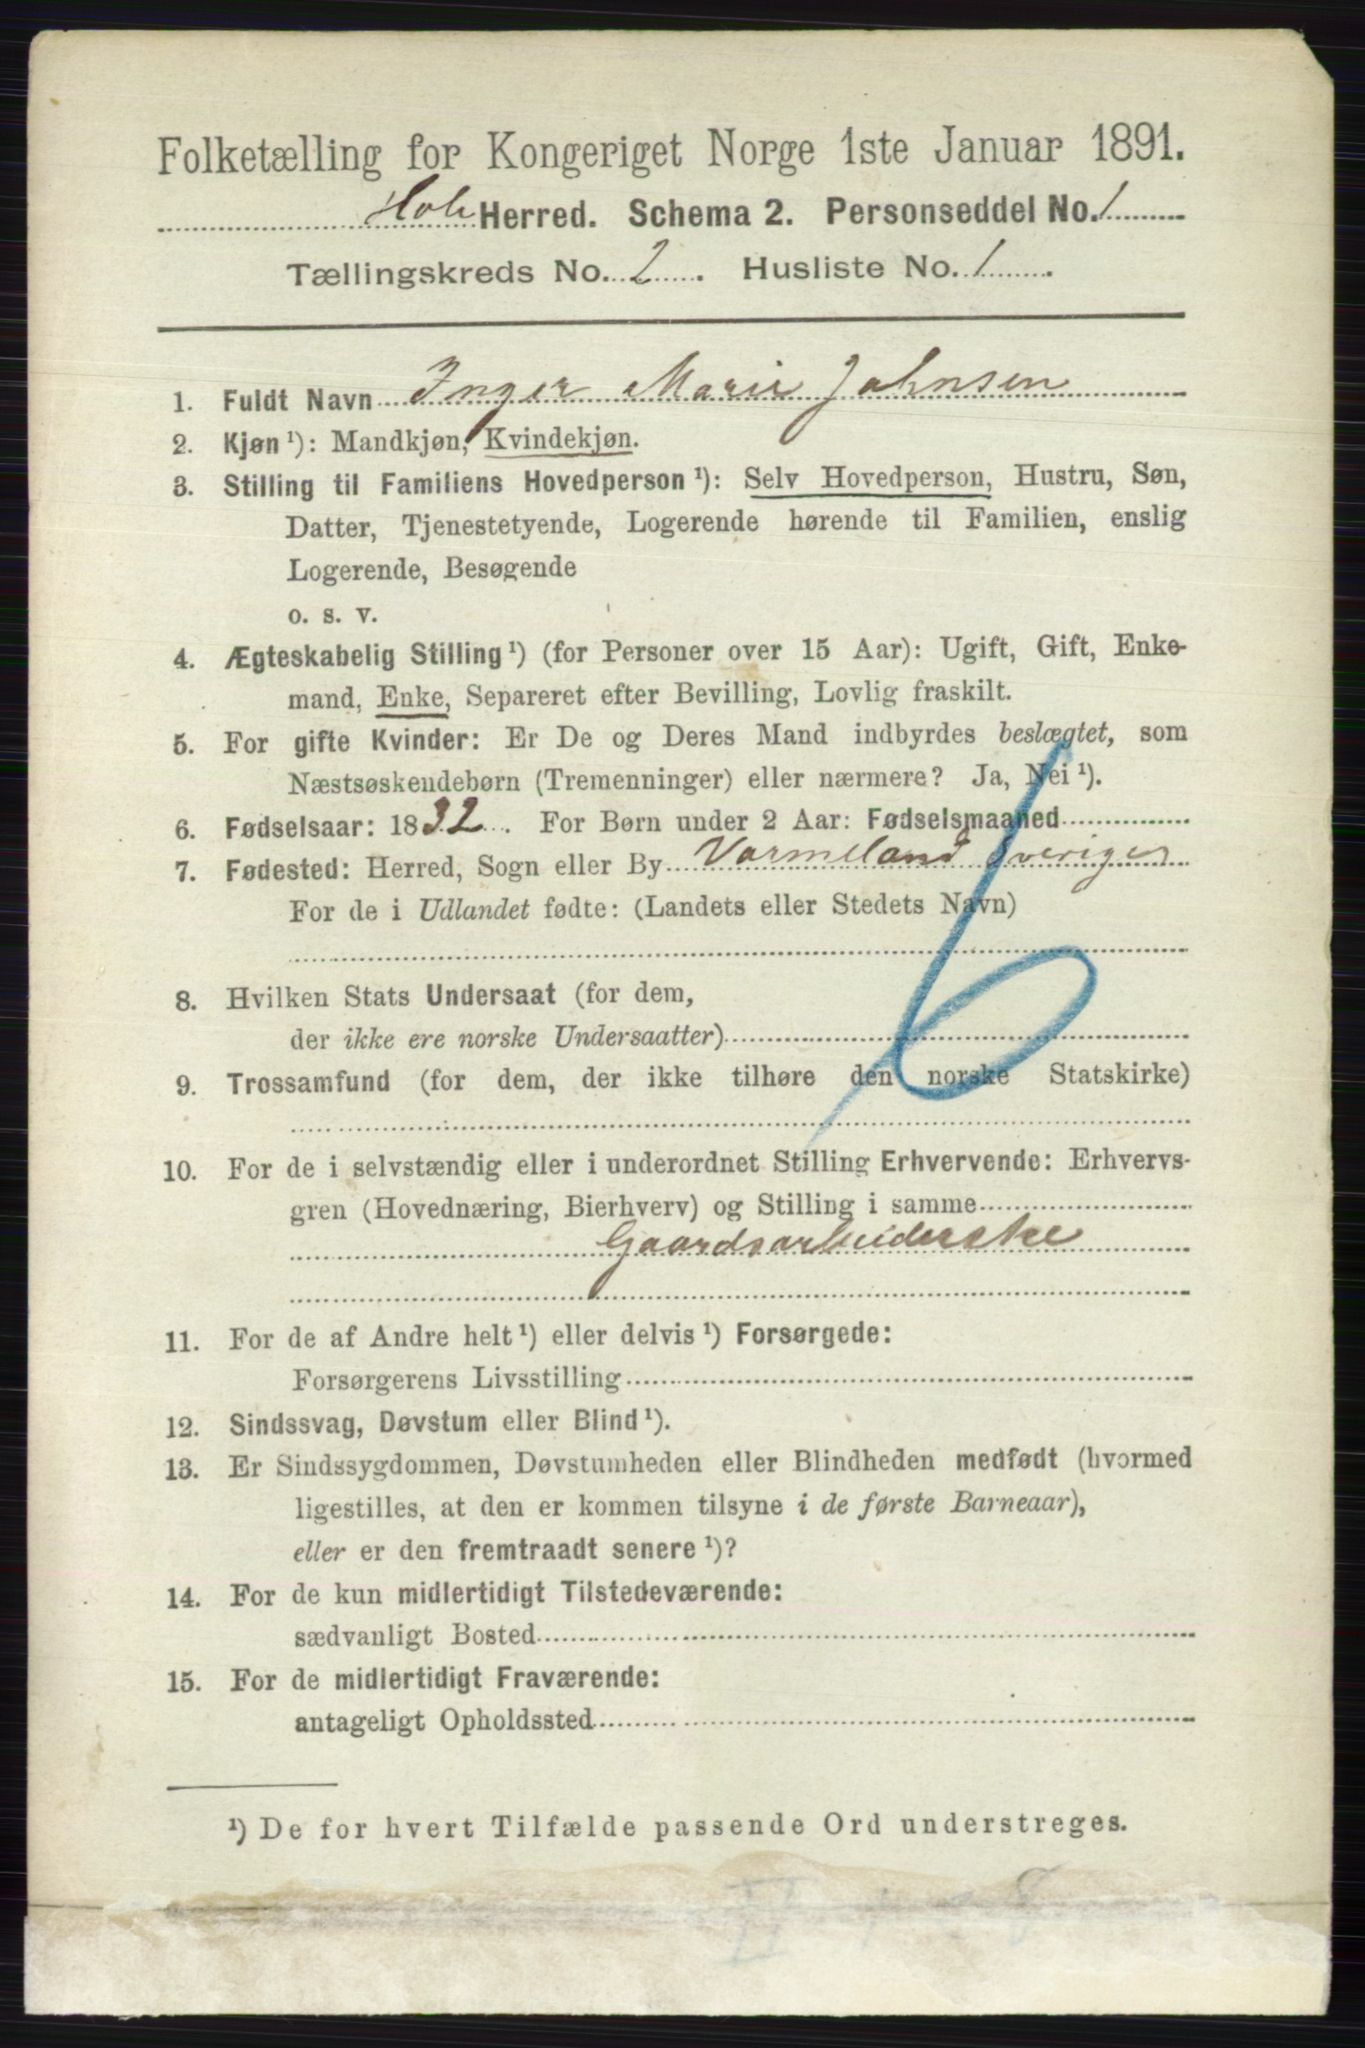 Folketælling for Kongeriget Norge 1ste Januar 1891.
Hole Herred. Schema 2. Personseddel No. 1
Tællingskreds No. 2. Husliste No. 1.
1. Fuldt Navn Inger Marie Johnsen
2. Kjøn ¹): Mandkjøn, Kvindekjøn.
3. Stilling til Familiens Hovedperson ¹): Selv Hovedperson, Hustru, Søn,
Datter, Tjenestetyende, Logerende hørende til Familien, enslig
Logerende, Besøgende
o. s. v.
4. Ægteskabelig Stilling ¹) (for Personer over 15 Aar): Ugift, Gift, Enke-
mand, Enke, Separeret efter Bevilling, Lovlig fraskilt.
5. For gifte Kvinder: Er De og Deres Mand indbyrdes beslægtet, som
Næstsøskendebørn (Tremenninger) eller nærmere? Ja, Nei ¹).
6. Fødselsaar: 1832. For Børn under 2 Aar: Fødselsmaaned
7. Fødested: Herred, Sogn eller By Varmeland Sveriges
For de i Udlandet fødte: (Landets eller Stedets Navn)
8. Hvilken Stats Undersaat (for dem,
der ikke ere norske Undersaatter)
9. Trossamfund (for dem, der ikke tilhøre den norske Statskirke)
10. For de i selvstændig eller i underordnet Stilling Erhvervende: Erhvervs-
gren (Hovednæring, Bierhverv) og Stilling i samme
Gaardsarbeiderske
11. For de af Andre helt ¹) eller delvis ¹) Forsørgede:
Forsørgerens Livsstilling
12. Sindssvag, Døvstum eller Blind ¹).
13. Er Sindssygdommen, Døvstumheden eller Blindheden medfødt (hvormed
ligestilles, at den er kommen tilsyne i de første Barneaar),
eller er den fremtraadt senere ¹)?
14. For de kun midlertidigt Tilstedeværende:
sædvanligt Bosted
15. For de midlertidigt Fraværende:
antageligt Opholdssted
¹) De for hvert Tilfælde passende Ord understreges.